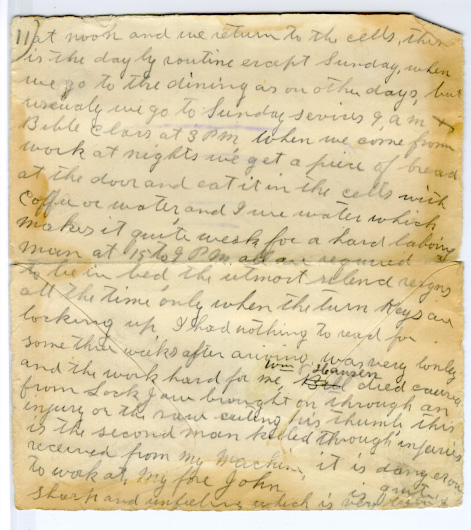 11) at nooh and we return to the cells, this
is the day by routine except Sunday, when
we go to the dining as on other days, but
usualy we go to Sunday sevices 9, a m &
Bible class at 3 P.M. When we come from
work at nights we get a piece of bread
at the door and eat it in the cells with
Coffee or water and I use water which
makes it quite weak for a hard laboring
man at 15 to 9 P.M. all are required
to be in bed the utmost silence reigns
all the time only when the turn Keys are
locking up. I had nothing to read for
some three weeks after ariving, was very lonly
Wm Hansen
and the work hard for me, died causey
from Lock Jaw brought on through an
injury or the saw cuting his thumb this
is the second man killed through injuries
received from my machine, it is dangerous
to work at, My fore John
quite
sharp and unfeeling which is very